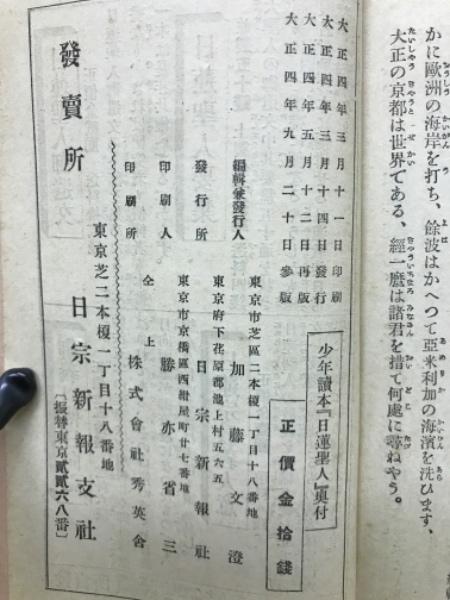 かに歐洲の海岸を打ち、餘波はかへつて亞米利加の海濱を洗ひます、
大正の京都は世界である、經一麿は諸君を措て何處に尋ねやう。
少年讀本『日蓮聖人』奧付
正價金拾錢
大正四年三月十一日印刷
大正四年三月十四日發行
大正四年五月十二日再版
大正四年九月二十日參版
東京市芝區二本榎一丁目十八番地
編輯兼發行人 加藤文澄
東京府下荏原郡池上村五六五
發行所 日宗新報社
東京市京橋區西紺屋町廿七番地
印刷人 勝亦省三
仝上
印刷所 株式會社秀英舍
東京芝二本榎一丁目十八番地
發賣所 日宗新報支社
〔振替東京貳貳六八番〕